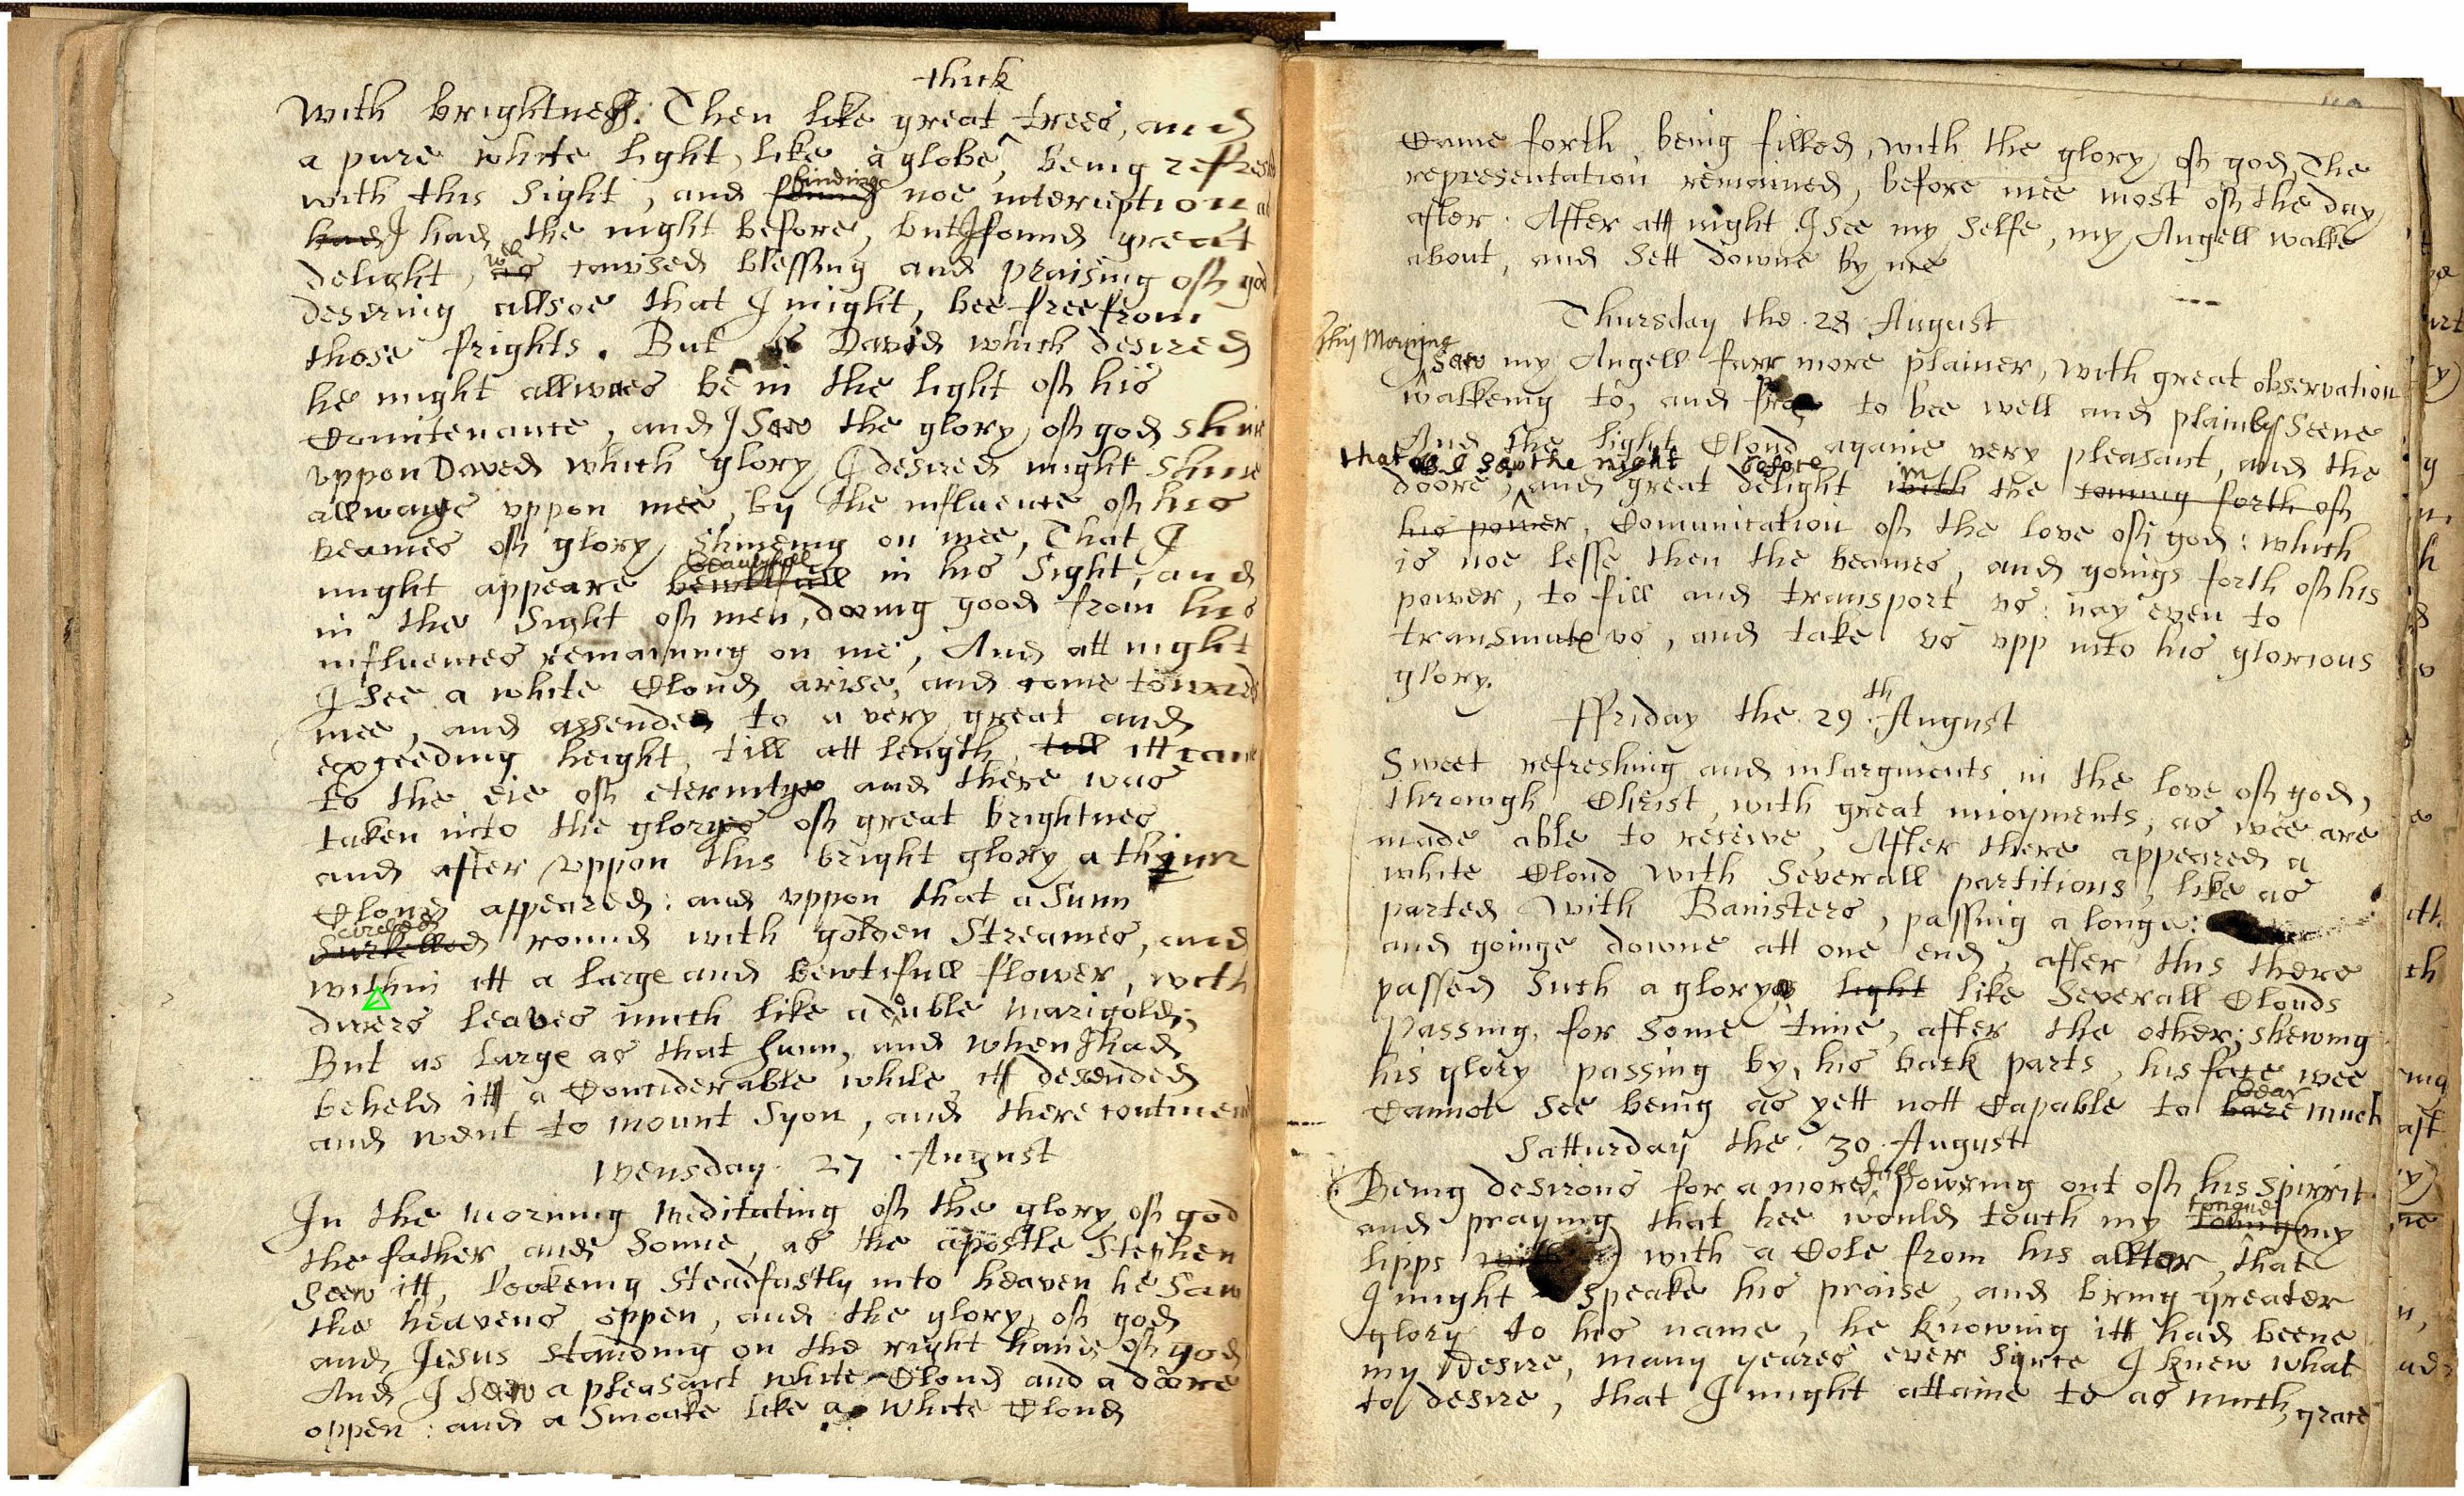 thick
With brightness: Then like great trees, and
a pure white light, like a globe, being refresh
finding
with this Sight, and found noe interuption, as
had I had the night before, but I found great
wch
delight, as cawsed blessing and praising of god
desering allsoe that I might, bee free from
those frights. But as David which desired
he might allwaes be in the light of his
Countenance, and I Saw the glory of god shine
vppon Daved which glory I desired might shine
allwaye vppon mee, by the influence of his
beames of glory shineing on mee, That I
beautyfull
might appeare bewtifull in his Sight, and
in the Sight of men, doeing good from his
influences remaining on me, And att night
I See a white Cloud arise, and come towards
mee, and assended to a very great and
exceeding height, till att length, till itt came
to the eie of eternitye and there was
taken into the gloryes of great brightnes
and after vppon this bright glory a thinn
Cloud appeared: and vppon that a Sunn
circled
Surkelled round with golden Streames, and
within itt a large and bewtifull flower, with
divers leaves much like a duble marigold;
But as large as that Sunn, and when I had
beheld itt a Conciderable while itt desended
and went to mount Syon, and there continued
Wensday 27 August
In the morning meditating of the glory of god
the father and Sonne, as the apostle Stephen
Seen itt, lookeing Steadfastly into heaven he Saw
the heavens oppen, and the glory of god
and Jesus standing on the right hand of god
And I Saw a pleasant white Cloud and a doore
oppen: and a Smoake like a White Cloud
Came forth, being filled, with the glory of god, The
representation remained, before mee most of the day
after. After att night I See my Selfe, my Angell walke
about, and Sett downe by mee
Thursday the 28 August
This Morning
I Saw my Angell farr more plainer, with great observation
walkeing to, and fro to bee well and plainly Seene
And the light Cloud againe very pleasant, and the
that I saw the night before
in
doore, and great delight with the coming forth of
his power, Comunication of the love of god: which
is noe lesse then the beames, and goings forth of his
power, to fill and transport vs: nay even to
transmute vs, and take vs vpp into his glorious
glory.
th
Ffriday the 29 August
Sweet refreshing and inlargments in the love of god,
through Christ, with great inioyments, as wee are
made able to reseive, After there appeared a
white Cloud with Severall partitions, like as
parted with Banisters, passing a longe:
and goinge downe att one end, after this there
passed Such a glory light like Severall Clouds
Passing, for Some time, after the other; shewing
his glory passing by, his back parts, his face wee
bear
Cannot See being as yett nott Capable to bare much
Satturday the 30 August
full
Being desirous for a more powring out of his Spirrit
tongue
and praying that hee would touch my toung my
lipps with a Cole from his alltar, that
I might Speake his praise, and bring greater
glory to his name, he knowing itt had beene
my Desire, many yeares ever Synce I knew what
to desire, that I might attaine to as much grace